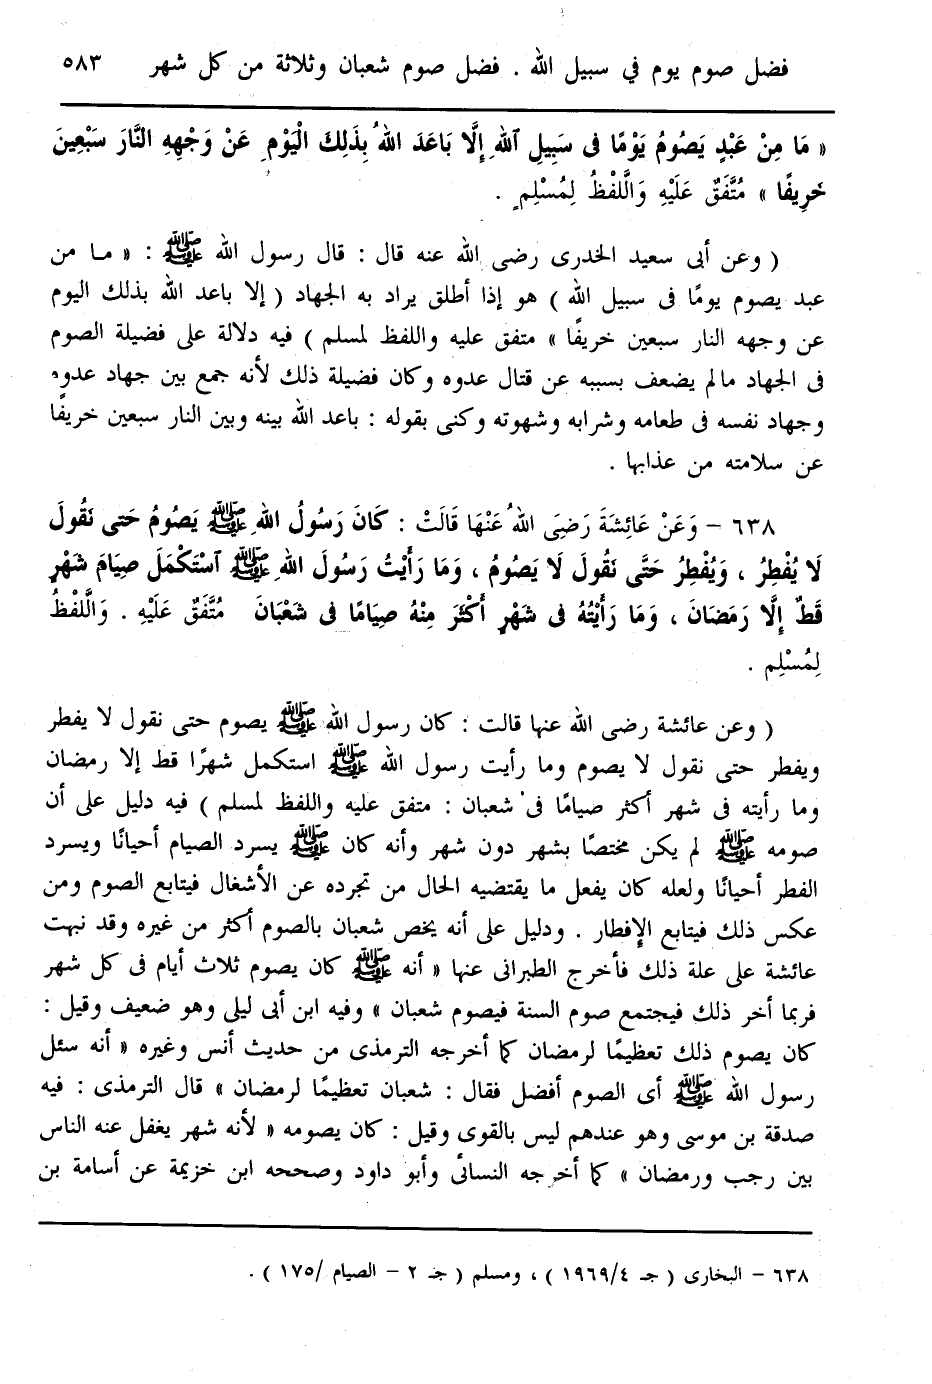 فضل صوم يوم في سبيل الله . فضل صوم شعبان وثلاثة من كل شهر ٥٨٣
« مَا مِنْ عَبْدٍ يَصُومُ يَوْمًا فى سَبِيلِ ٱللهِ إِلَّا بَاعَدَ اللهُ بِذَلِكَ الْيَوْمِ عَنْ وَجْهِهِ النَّارَ سَبْعِينَ
خَرِيفًا » مُتَّفَقٌ عَلَيْهِ وَالَّلفْظُ لِمُسْلِمٍ .
( وعن أبى سعيد الخدرى رضى الله عنه قال : قال رسول الله ﷺ : « مـا من
عبد يصوم يومًا فى سبيل الله ) هو إذا أطلق يراد به الجهاد ( إلا باعد الله بذلك اليوم
عن وجهه النار سبعين خريفًا » متفق عليه واللفظ لمسلم ) فيه دلالة على فضيلة الصوم
فى الجهاد مالم يضعف بسببه عن قتال عدوه وكان فضيلة ذلك لأنه جمع بين جهاد عدوه
وجهاد نفسه فى طعامه وشرابه وشهوته وكنى بقوله : باعد الله بينه وبين النار سبعين خريفًا
عن سلامته من عذابها .
٦٣٨ - وَعَنْ عَائِشَةَ رَضِىَ اللهُ عَنْهَا قَالَتْ : كَانَ رَسُولُ اللهِ ﷺ يَصُومُ حَتى نَقُولَ
لَا يُفْطِرُ ، وَيُفْطِرُ حَتَّى نَقُولَ لَا يَصُومُ ، وَمَا رَأَيْتُ رَسُولَ اللهِ ﷺ ٱسْتَكْمَلَ صِيَامَ شَهْرٍ
قَطُّ إِلَّا رَمَضَانَ ، وَمَا رَأَيْتُهُ فى شَهْرٍ أَكْثَرَ مِنْهُ صِيَامًا فى شَعْبَانَ مُتَّفَقٌ عَلَيْهِ . وَالَّلفْظُ
لِمُسْلِم .
( وعن عائشة رضى الله عنها قالت : كان رسول الله ﷺ يصوم حتى نقول لا يفطر
ويفطر حتى نقول لا يصوم وما رأيت رسول الله ﷺ استكمل شهرًا قط إلا رمضان
وما رأيته فى شهر أكثر صيامًا فى شعبان : متفق عليه واللفظ لمسلم ) فيه دليل على أن
صومه ﷺ لم يكن مختصًا بشهر دون شهر وأنه كان ﷺ يسرد الصيام أحيانًا ويسرد
الفطر أحيانًا ولعله كان يفعل ما يقتضيه الحال من تجرده عن الأشغال فيتابع الصوم ومن
عكس ذلك فيتابع الإفطار . ودليل على أنه يخص شعبان بالصوم أكثر من غيره وقد نبهت
عائشة على علة ذلك فأخرج الطبرانى عنها « أنه ﷺ كان يصوم ثلاث أيام فى كل شهر
فربما أخر ذلك فيجتمع صوم السنة فيصوم شعبان » وفيه ابن أبى ليلى وهو ضعيف وقيل :
كان يصوم ذلك تعظيمًا لرمضان كما أخرجه الترمذى من حديث أنس وغيره « أنه سئل
رسول الله ﷺ أى الصوم أفضل فقال : شعبان تعظيمًا لرمضان » قال الترمذى : فيه
صدقة بن موسى وهو عندهم ليس بالقوى وقيل : كان يصومه « لأنه شهر يغفل عنه الناس
بين رجب ورمضان » كما أخرجه النسائى وأبو داود وصححه ابن خزيمة عن أسامة بن
٦٣٨ - البخارى ( جـ ٤/ ١٩٦٩ ) ، ومسلم ( جـ ٢ - الصيام /١٧٥ ) .